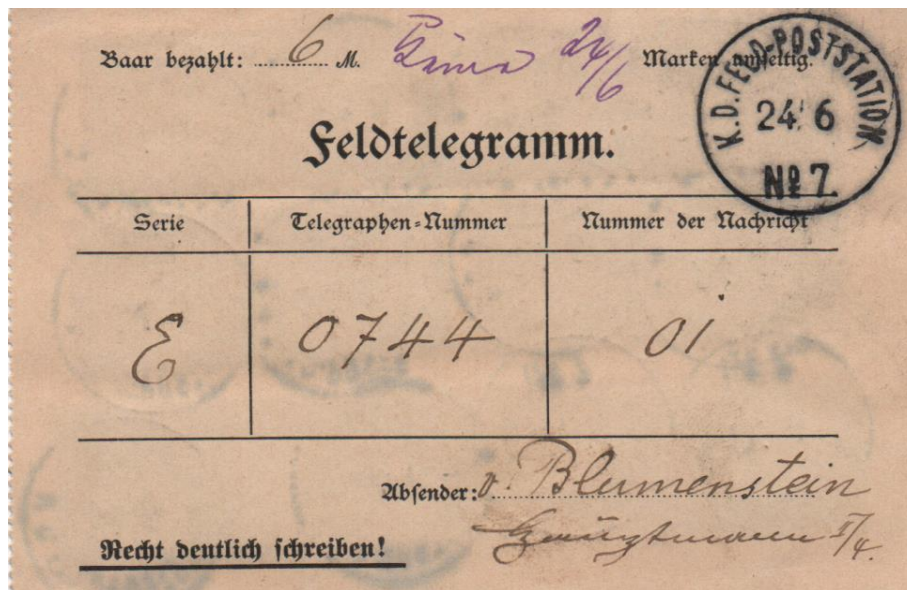 Baar bezahlt: 6 M. 24/6 Marken umseitig.
K.D. FELD-POSTSTATION
24 6
№ 7.
Feldtelegramm.
Serie Telegraphen-Nummer Nummer der Nachricht
E 0744 01
Absender: v. Blumenstein
Hauptmann
Recht deutlich schreiben!